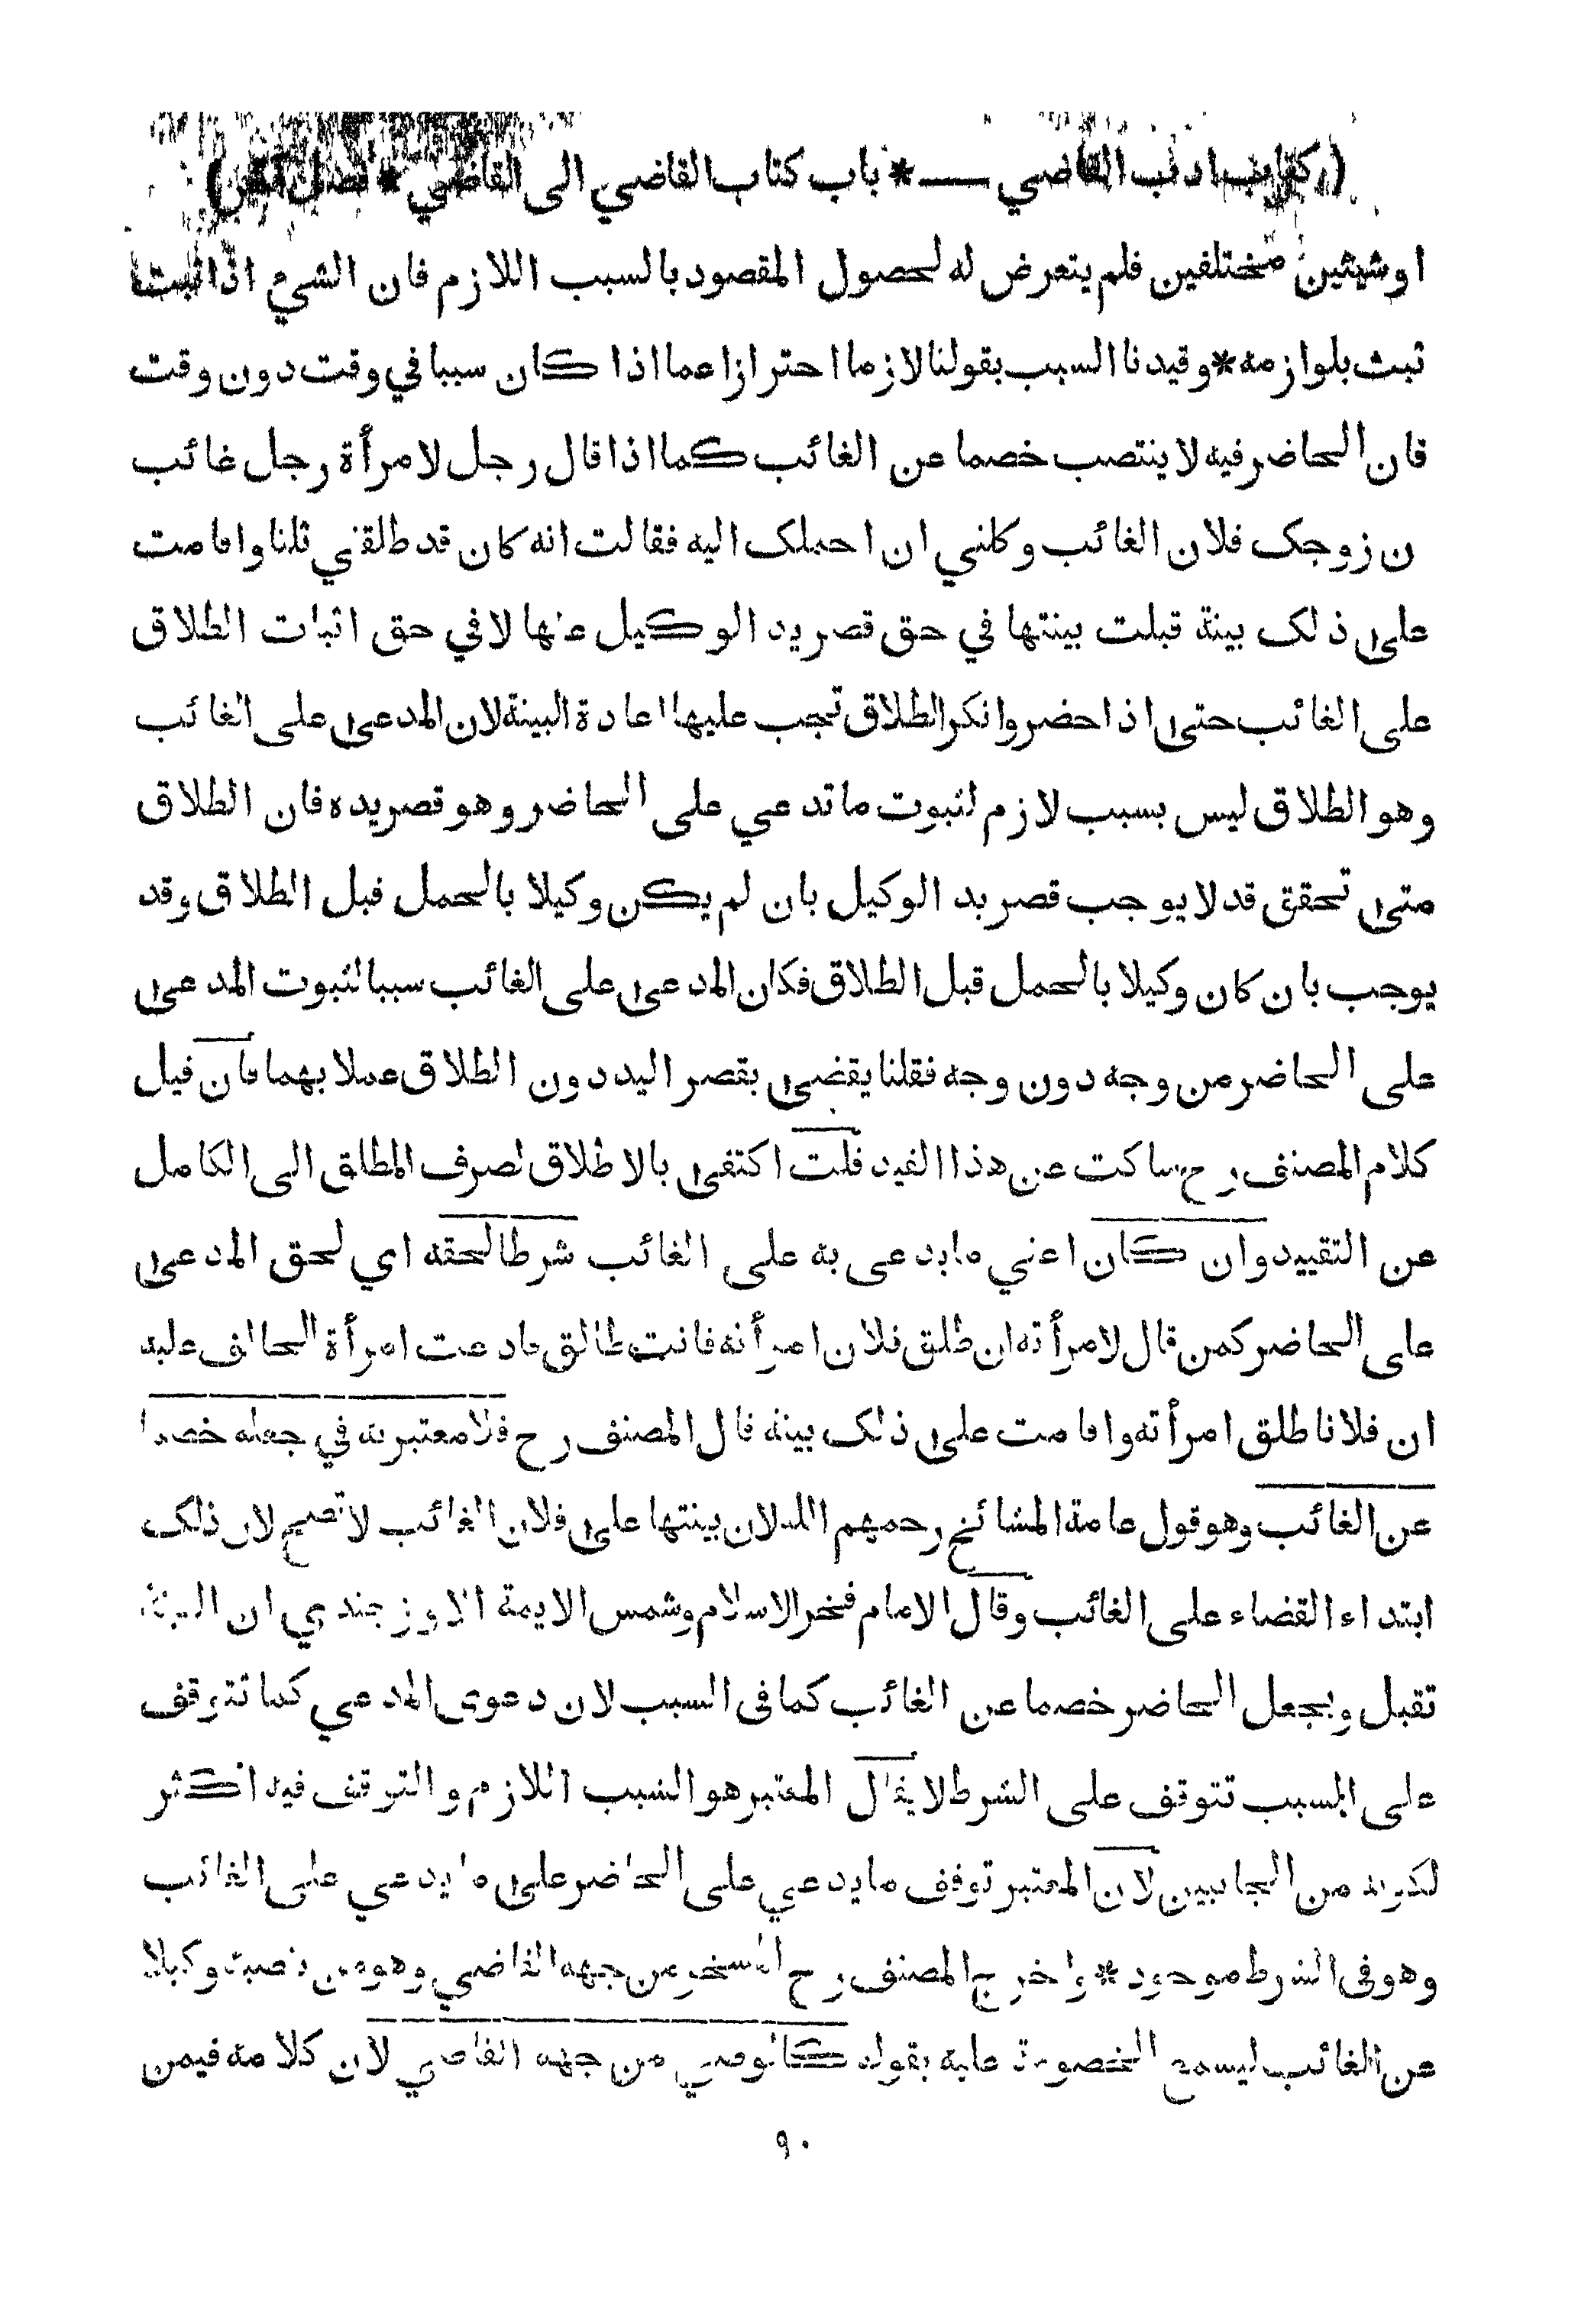 (كتاب ادب القاضي — * باب كتاب القاضي الى القاضي * فصل آخر)
او شيئين مختلفين فلم يتعرض له لحصول المقصود بالسبب اللازم فان الشيء اذا ثبت
ثبت بلوازمه * وقيدنا السبب بقولنا لازما احترازا عما اذا كان سببا في وقت دون وقت
فان الحاضر فيه لا ينتصب خصما عن الغائب كما اذا قال رجل لامرأة رجل غائب
ن زوجك فلان الغائب وكلني ان احملك اليه فقالت انه كان قد طلقني ثلثا واقامت
على ذلك بينة قبلت بينتها في حق قصر يد الوكيل عنها لا في حق اثبات الطلاق
على الغائب حتى اذا حضر وانكر الطلاق تجب عليها اعادة البينة لان المدعى على الغائب
وهو الطلاق ليس بسبب لازم لثبوت ما تدعي على الحاضر وهو قصر يده فان الطلاق
متى تحقق قد لا يوجب قصر يد الوكيل بان لم يكن وكيلا بالحمل قبل الطلاق وقد
يوجب بان كان وكيلا بالحمل قبل الطلاق فكان المدعى على الغائب سببا لثبوت المدعى
على الحاضر من وجه دون وجه فقلنا يقضى بقصر اليد دون الطلاق عملا بهما فان قيل
كلام المصنف رح ساكت عن هذا القيد قلت اكتفى بالاطلاق لصرف المطلق الى الكامل
عن التقييد وان كان اعني ما يدعى به على الغائب شرطا لحقه اي لحق المدعى
على الحاضر كمن قال لامرأته ان طلق فلان امرأته فانت طالق فادعت امرأة الحالف عليه
ان فلانا طلق امرأته واقامت على ذلك بينة قال المصنف رح فلا معتبر به في جعله خصما
عن الغائب وهو قول عامة المشائخ رحمهم الله لان بينتها على فلان الغائب لا تصح لان ذلك
ابتداء القضاء على الغائب وقال الامام فخر الاسلام وشمس الايمة الاوزجندي ان البينة
تقبل ويجعل الحاضر خصما عن الغائب كما في السبب لان دعوى المدعي كما تتوقف
على السبب تتوقف على الشرط لا يقال المعتبر هو السبب اللازم والتوقف فيه اكثر
لكونه من الجانبين لان المعتبر توقف ما يدعي على الحاضر على ما يدعي على الغائب
وهو في الشرط موجود * واخرج المصنف رح المسخر من جهة القاضي وهو من نصبه وكيلا
عن الغائب ليسمع الخصومة عليه بقوله كالوصي من جهة القاضي لان كلامه فيمن
٩٠